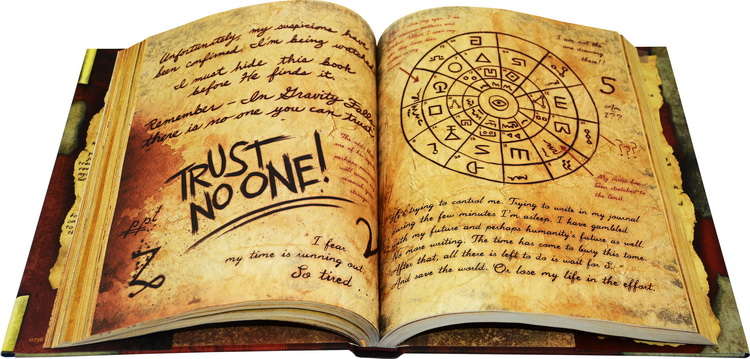 Unfortunately, my suspicions have
been confirmed. I'm being watched
I must hide this book
before He finds it.
Remember - In Gravity Falls
there is no one you can trust.
TRUST
NO ONE!
I fear
my time is running out
So tired...
2
I am not the
one drawing
these!!
5
Am
I??
!??
My mind has
been stretched to
the limit.
trying to control me. Trying to write in my journal
during the few minutes I'm asleep. I have gambled
with my future and perhaps humanity's future as well.
No more writing. The time has come to bury this tome.
After that, all there is left to do is wait for S...
And save the world. Or lose my life in the effort.